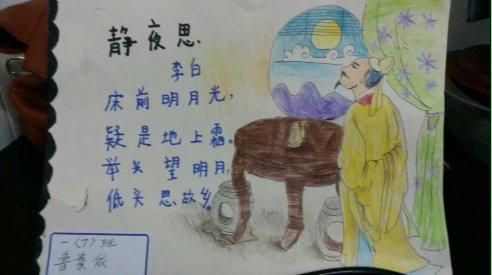 静夜思
李白
床前明月光，
疑是地上霜。
举头望明月，
低头思故乡。
一（丁）班
鲁素依